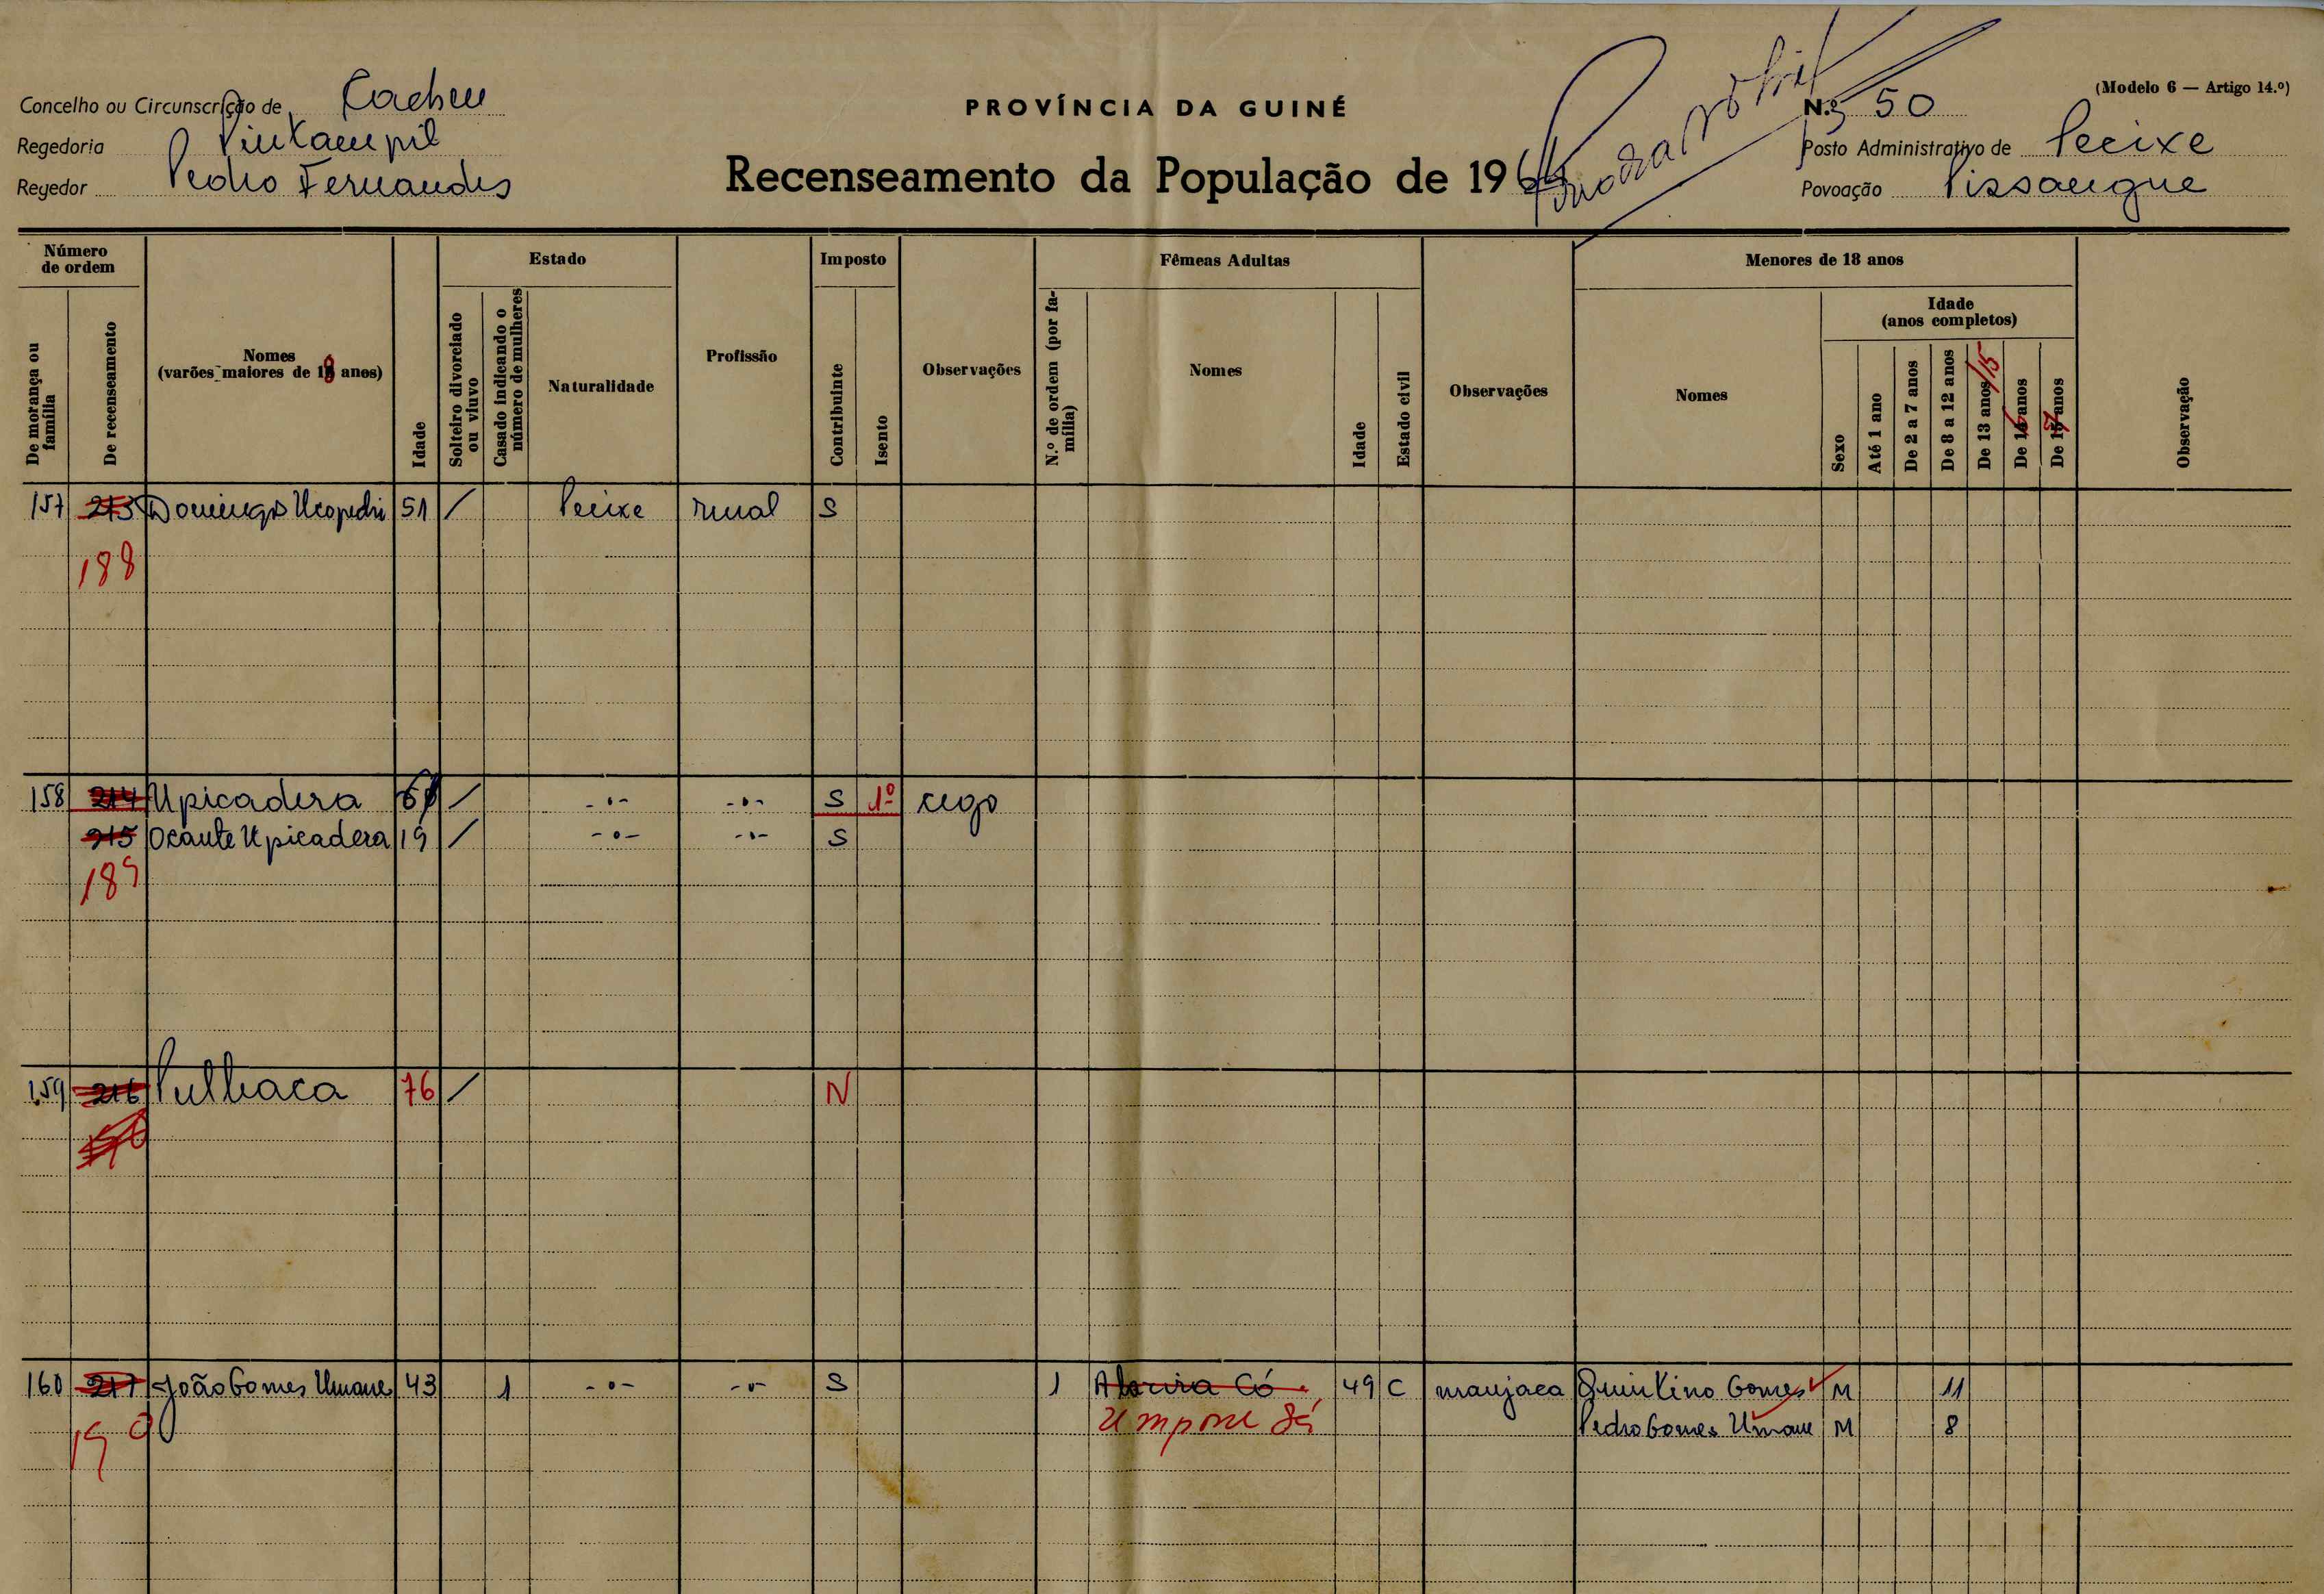 Concelho ou Circunscrição de Cacheu
Regedoria
Regedor Pedro Fernandes
PROVÍNCIA DA GUINÉ
Recenseamento da População de 1964
(Modelo 6 — Artigo 14.º)
N.º 50
Posto Administrativo de Pecixe
Povoação Pissangue
Número de ordem
De morança ou família
De recenseamento
Nomes
(varões maiores de 18 anos)
Idade
Estado
Solteiro divorciado ou viuvo
Casado indicando o número de mulheres
Naturalidade
Profissão
Imposto
Contribuinte
Isento
Observações
Fêmeas Adultas
N.º de ordem (por família)
Nomes
Idade
Estado civil
Observações
Menores de 18 anos
Nomes
Idade
(anos completos)
Sexo
Até 1 ano
De 2 a 7 anos
De 8 a 12 anos
De 13 anos /15
De 16 anos
De 17 anos
Observação
157 213 Domingos Ucopedri 51 / Pecixe rural S
188
158 214 Upicadera / -"- -"- S 1º cego
215 Ocante Upicadera 19 / -"- -"- S
189
159 216 Pulhaca 76 / N
160 217 João Gomes Umane 43 1 -"- -"- S 1 Có 49 C manjaca Quintino Gomes M 11
190 Umpone Sá Pedro Gomes Umane M 8